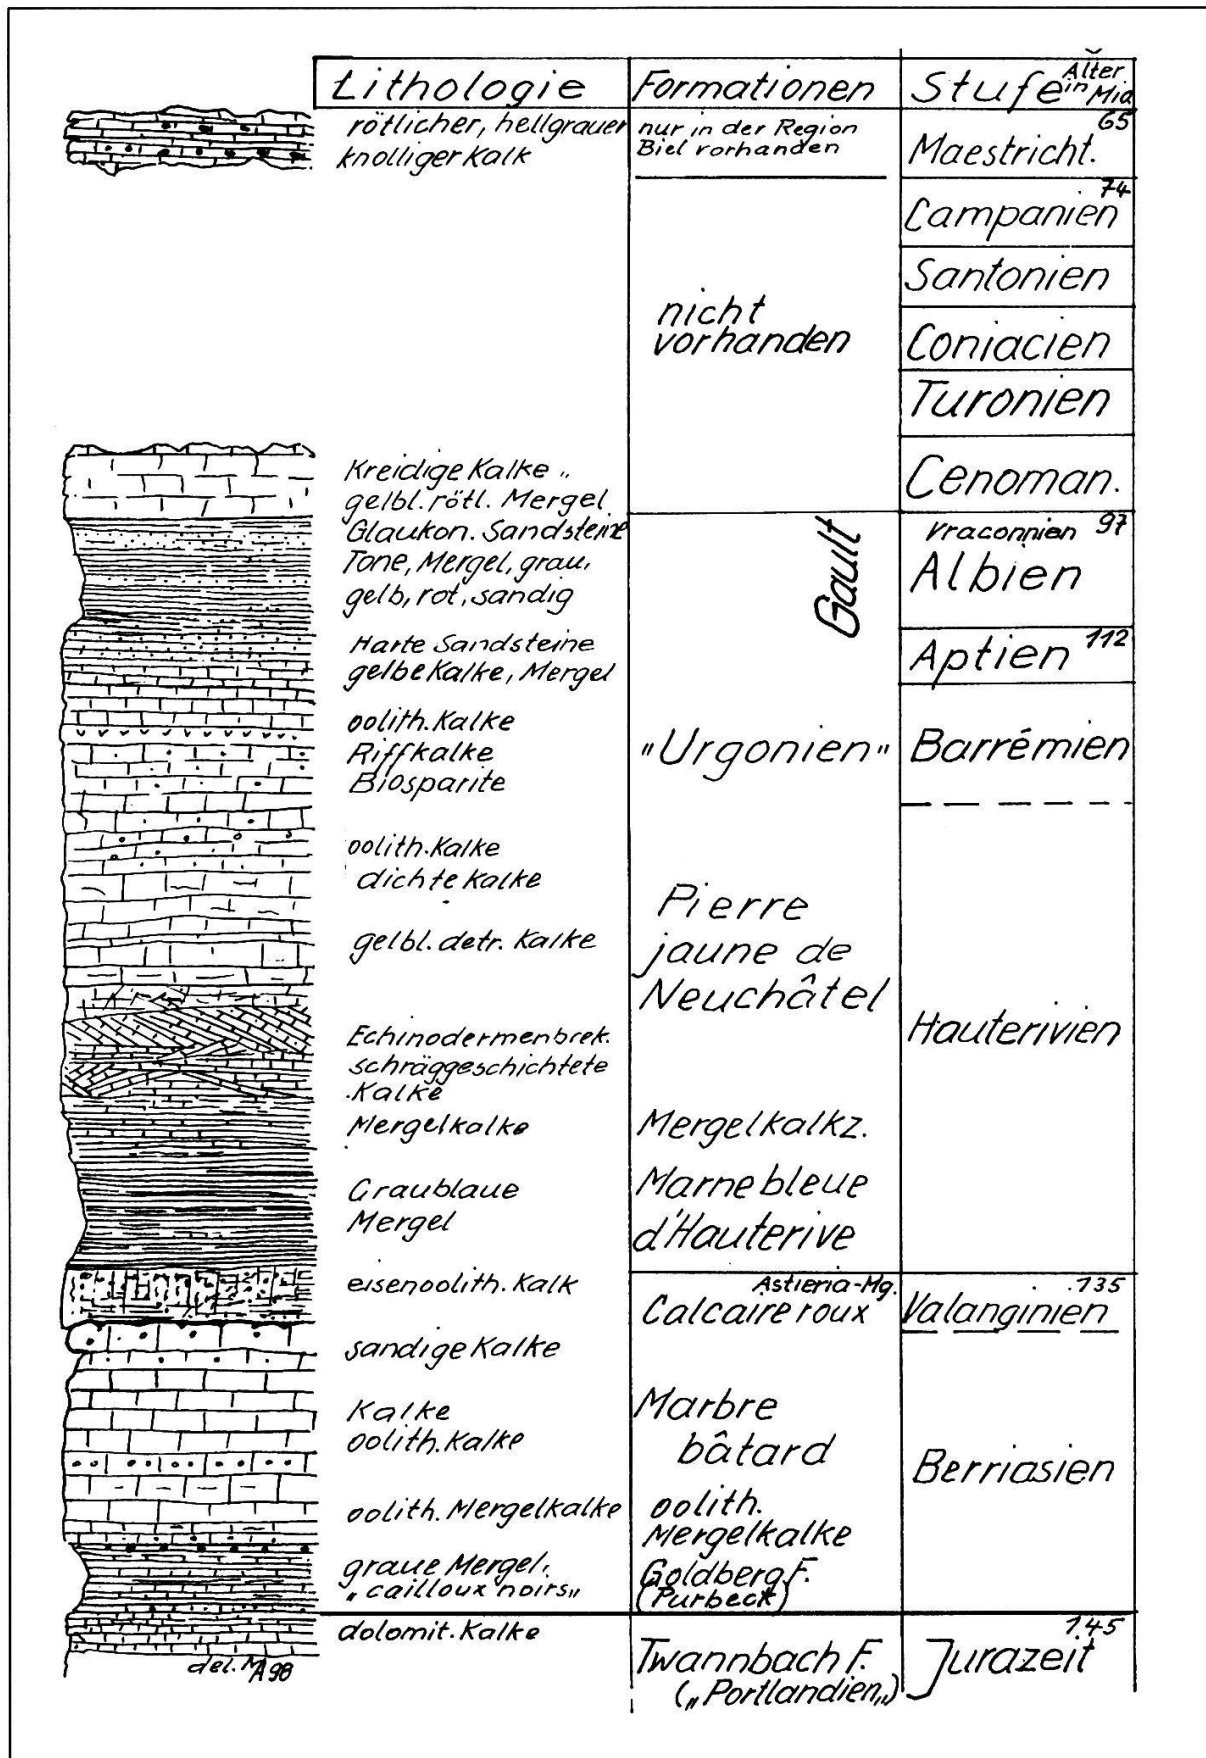 Lithologie
rötlicher, hellgrauer
knolliger Kalk
Kreidige Kalke
gelbl. rötl. Mergel
Glaukon. Sandsteine
Tone, Mergel, grau,
gelb, rot, sandig
Harte Sandsteine
gelbe Kalke, Mergel
oolith. Kalke
Riffkalke
Biosparite
oolith. Kalke
dichte Kalke
gelbl. detr. Kalke
Echinodermenbrek.
schräggeschichtete
Kalke
Mergelkalke
Graublaue
Mergel
eisenoolith. Kalk
sandige Kalke
Kalke
oolith. Kalke
oolith. Mergelkalke
graue Mergel,
„cailloux noirs„
dolomit. Kalke
del. MA 98
Formationen
nur in der Region
Biel vorhanden
nicht
vorhanden
Gault
"Urgonien"
Pierre
jaune de
Neuchâtel
Mergelkalkz.
Marne bleue
d'Hauterive
Astieria-Mg.
Calcaire roux
Marbre
bâtard
oolith.
Mergelkalke
Goldberg F.
(Purbeck)
Twannbach F.
(„Portlandien„)
Stufe Alter in Mia
65
Maestricht.
74
Campanien
Santonien
Coniacien
Turonien
Cenoman.
Vraconnien 97
Albien
Aptien 112
Barrémien
Hauterivien
135
Valanginien
Berriasien
145
Jurazeit